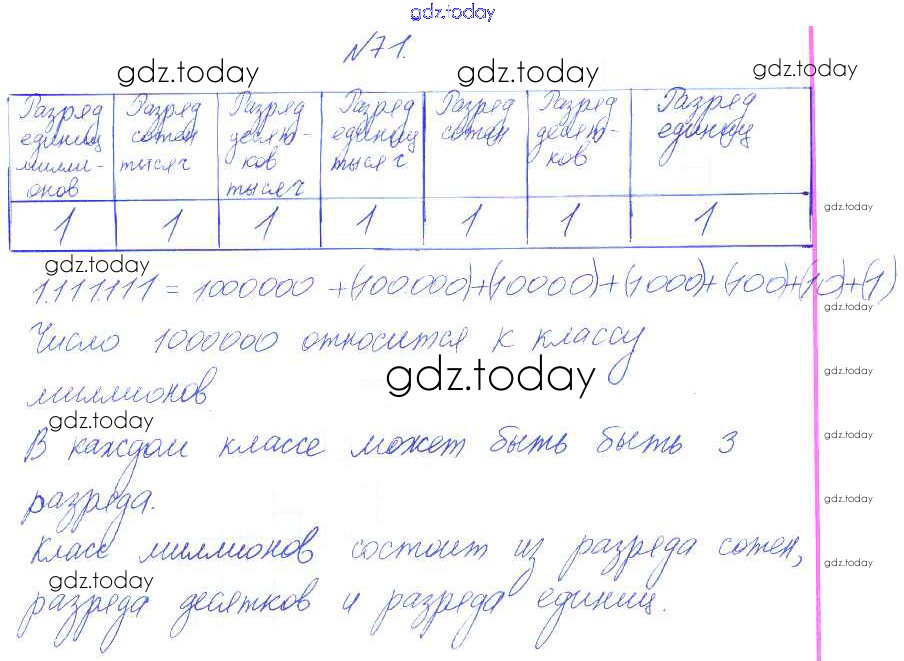 gdz.today
№71.
gdz.today gdz.today gdz.today
Разряд Разряд Разряд Разряд Разряд Разряд Разряд
единиц сотен десят- единиц сотен десят- единиц
милли- тысяч ков тысяч ков
онов тысяч
1 1 1 1 1 1 1
gdz.today
gdz.today
1.111.111 = 1000000 +(100000)+(10000)+(1000)+(100)+(10)+(1)
gdz.today
Число 1000000 относится к классу
gdz.today
gdz.today
миллионов
gdz.today
gdz.today
В каждом классе может быть быть 3
gdz.today
разряда.
Класс миллионов состоит из разряда сотен,
gdz.today
gdz.today
разряда десятков и разряда единиц.